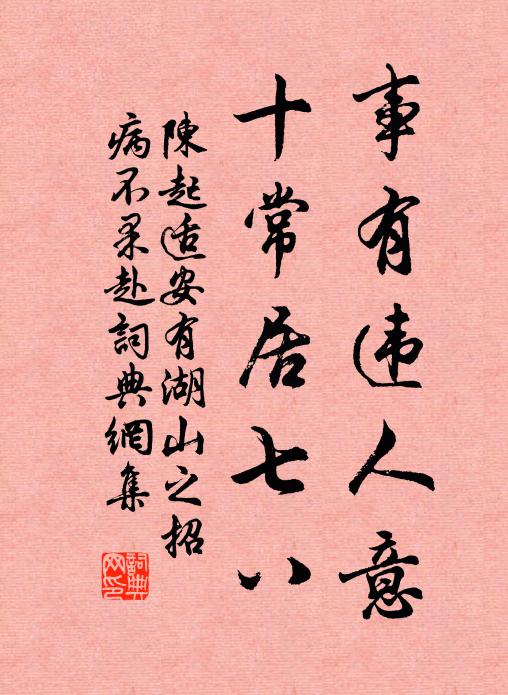 事有违人意
十常居七八
陳起适安有湖山之招
病不果赴詞典網集
詞典
网印